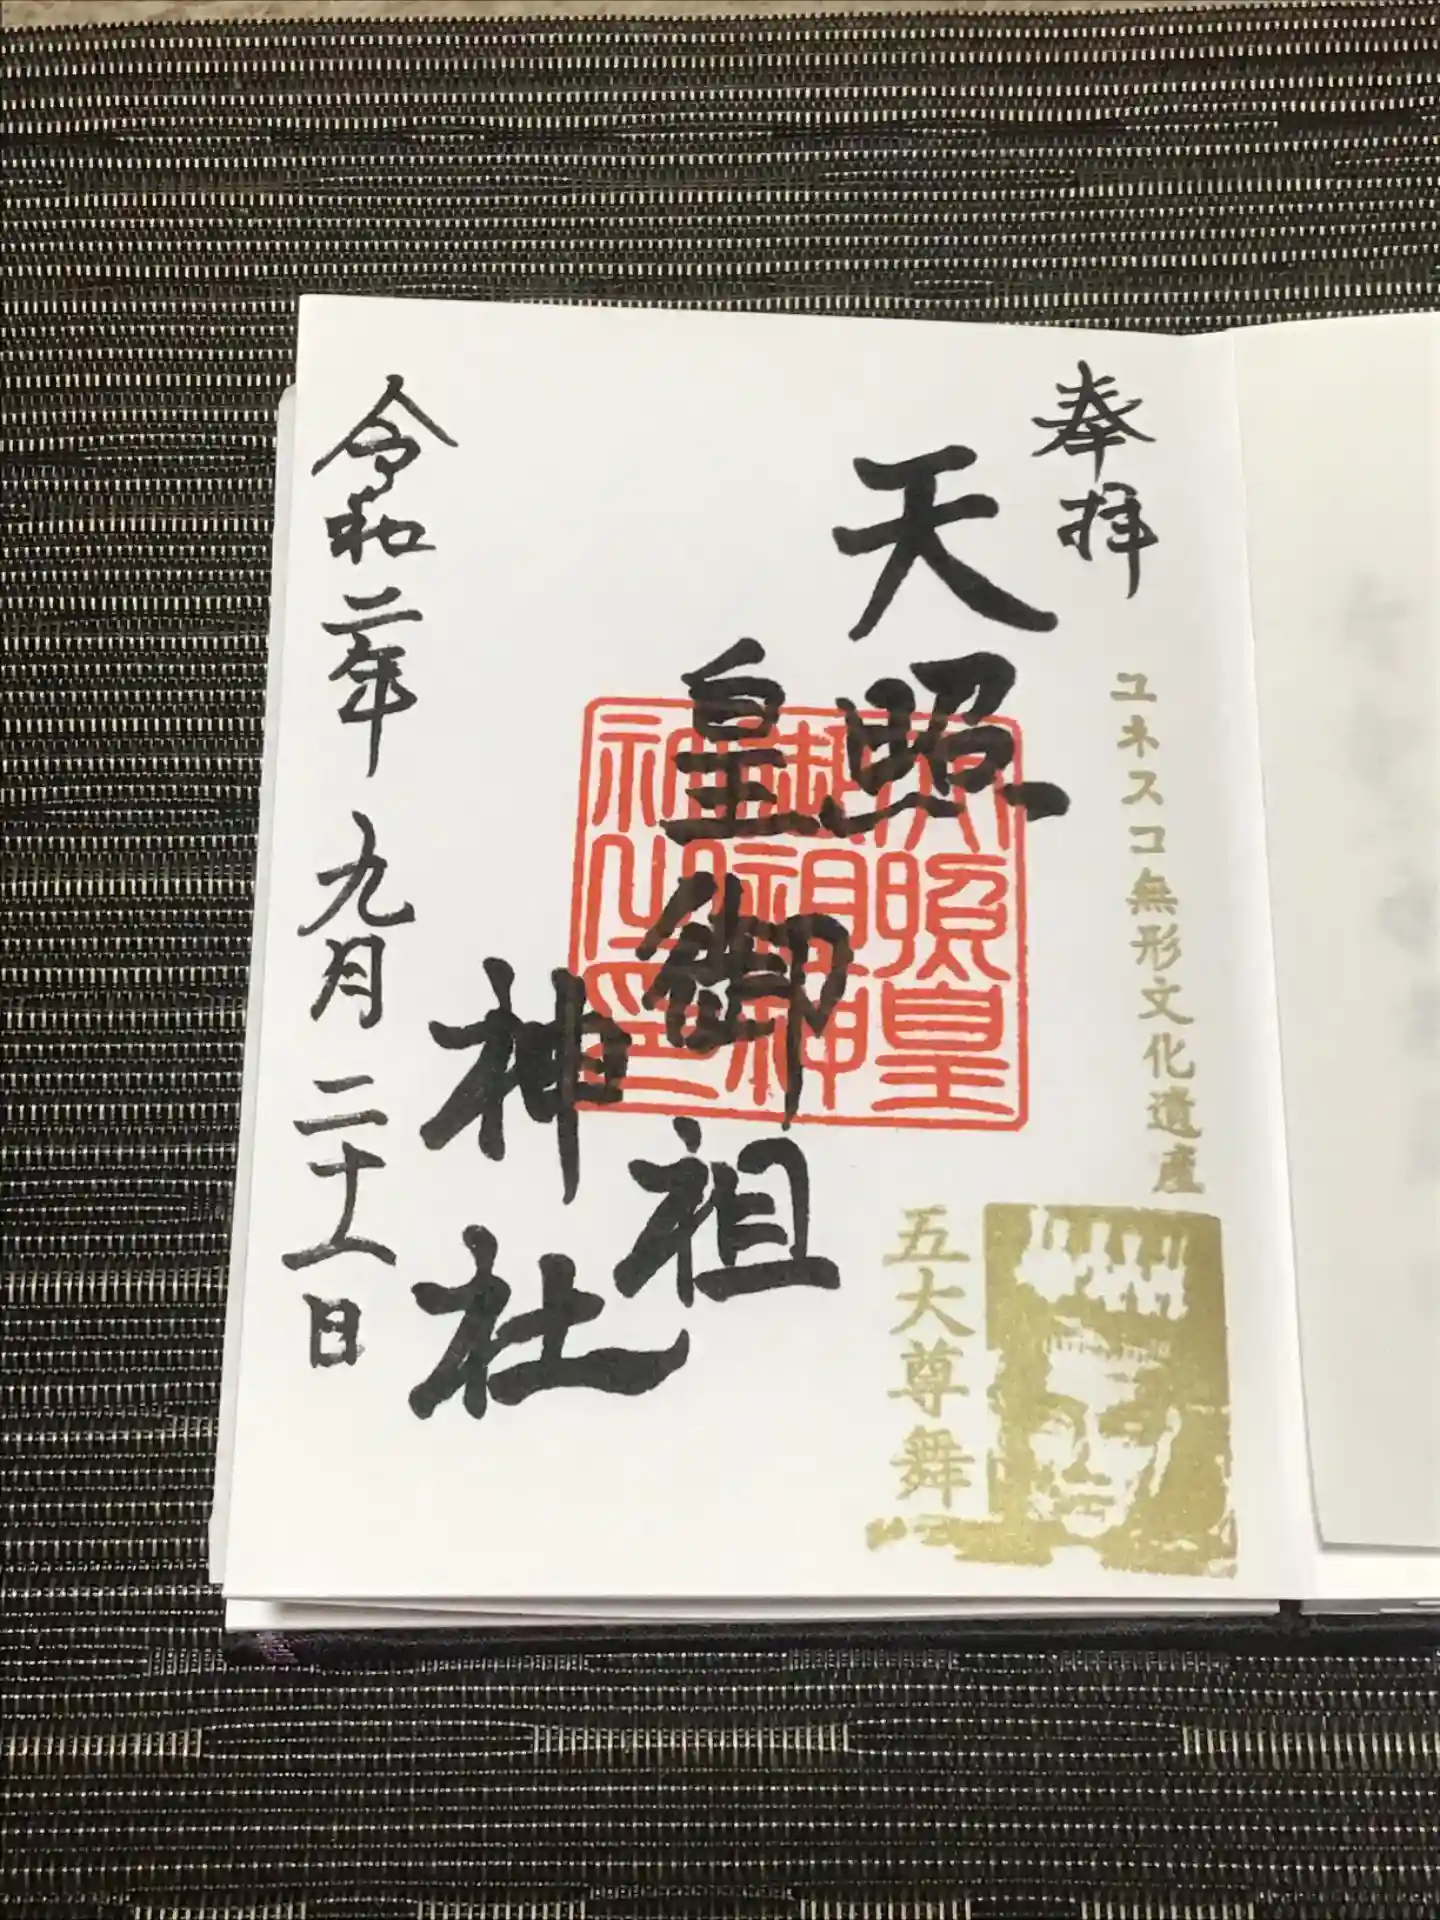 奉拝
天照
皇御祖
神社
令和二年 九月 二十一日
ユネスコ無形文化遺産
五大尊舞
天照皇
御祖神
社之印